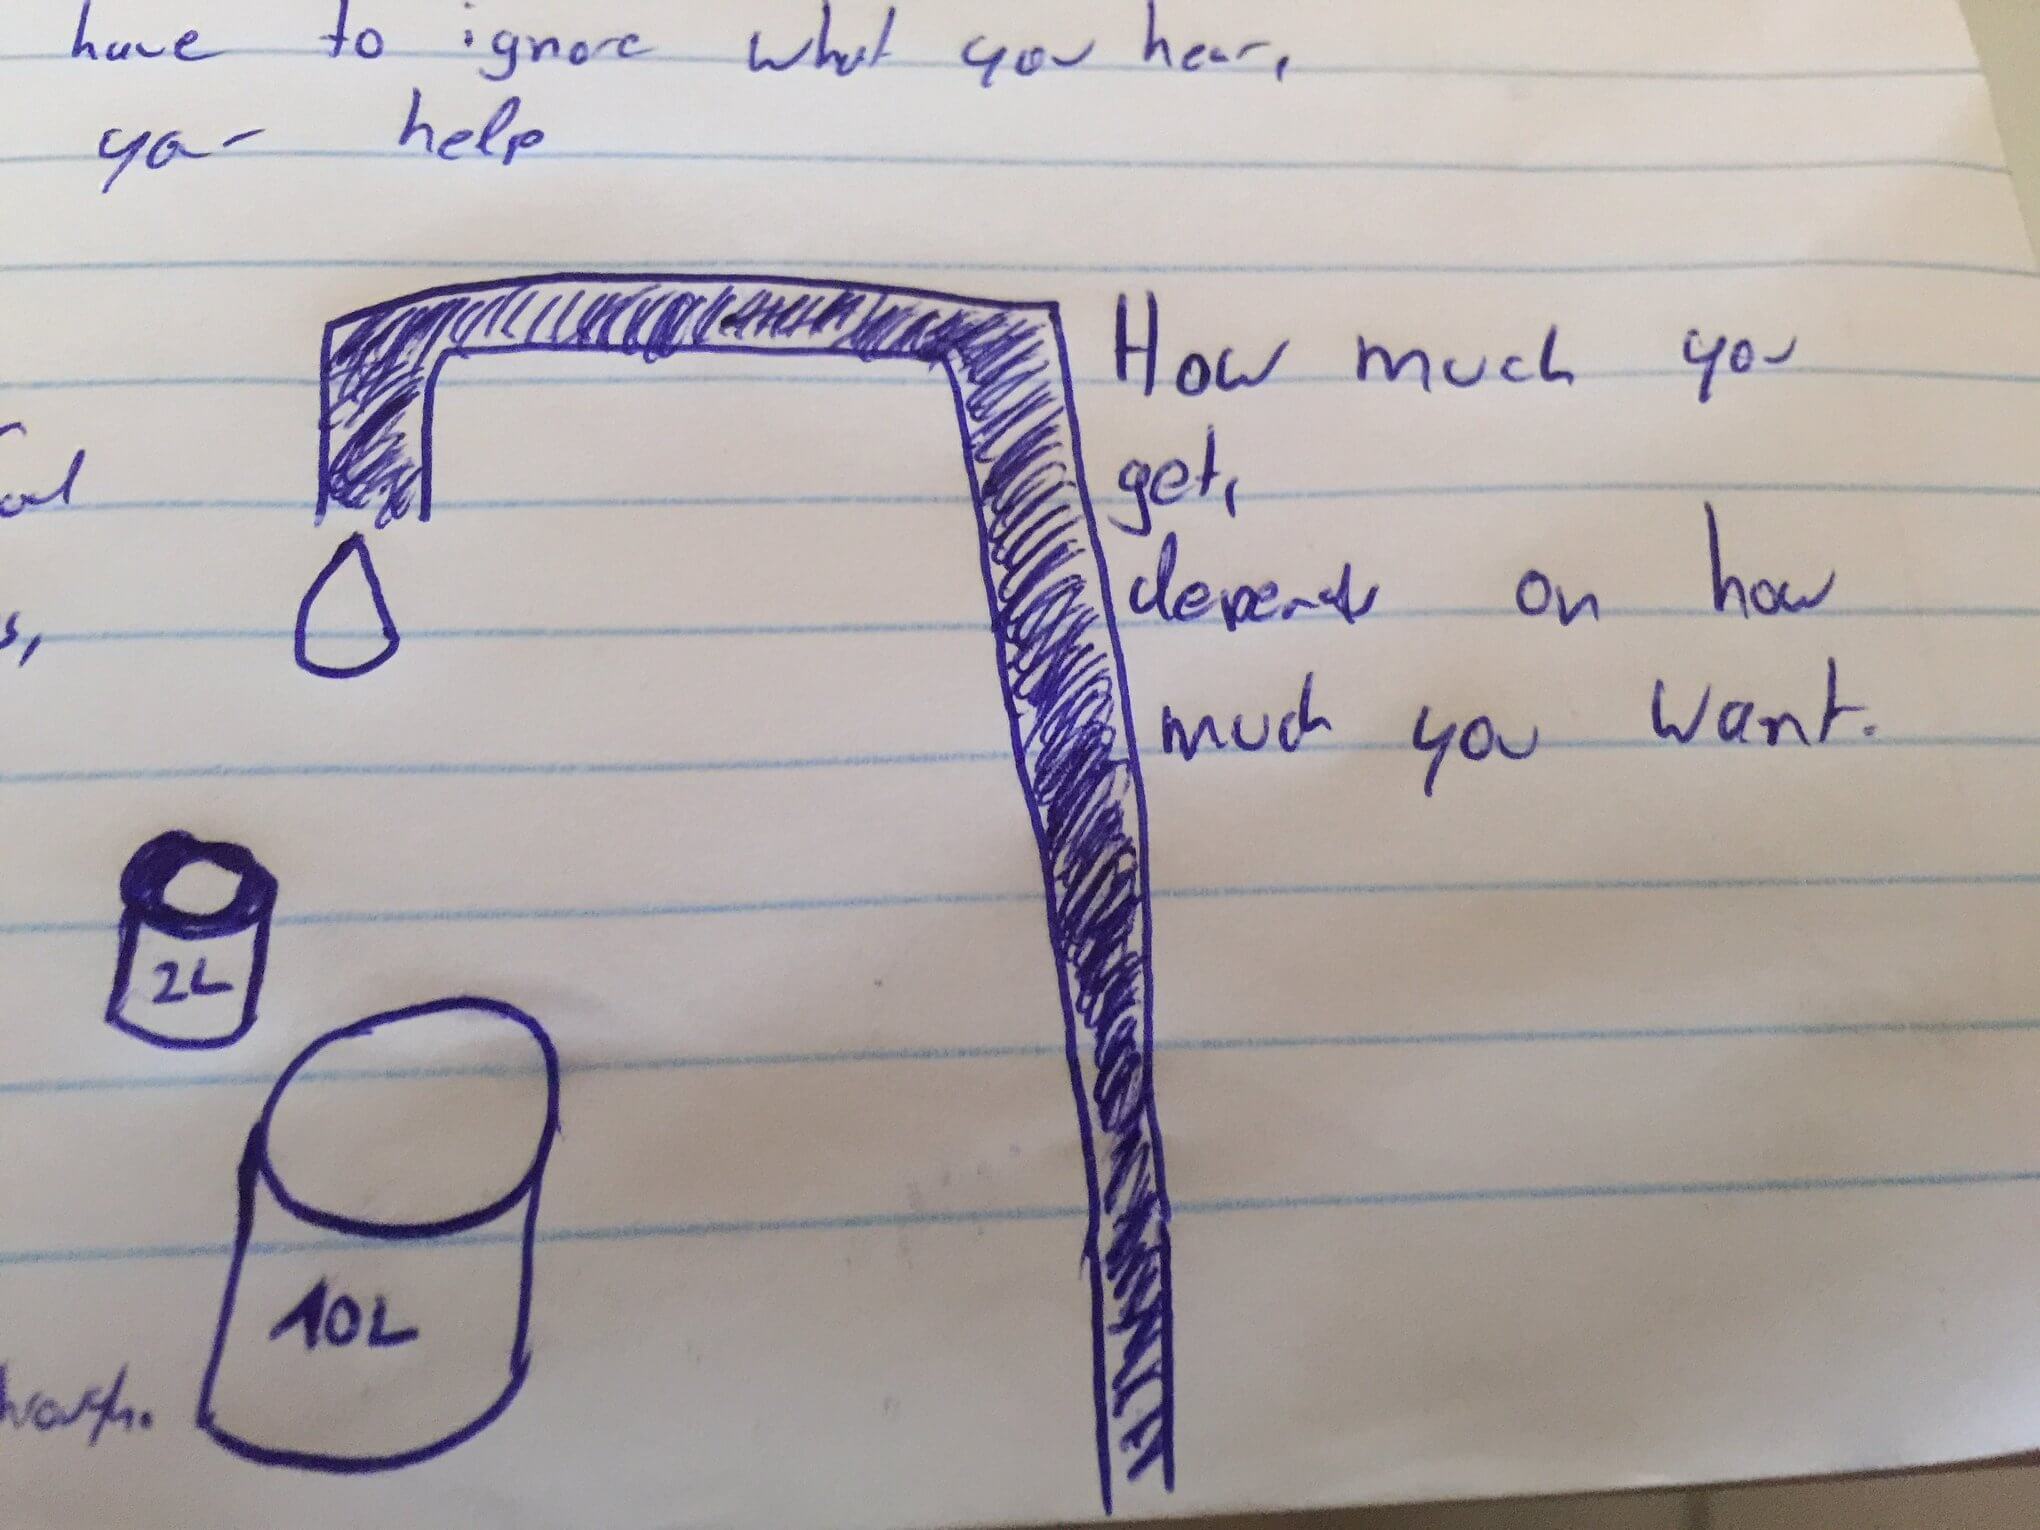 have to ignore what you hear,
your help
How much you
get,
depends on how
much you want.
s,
2L
10L